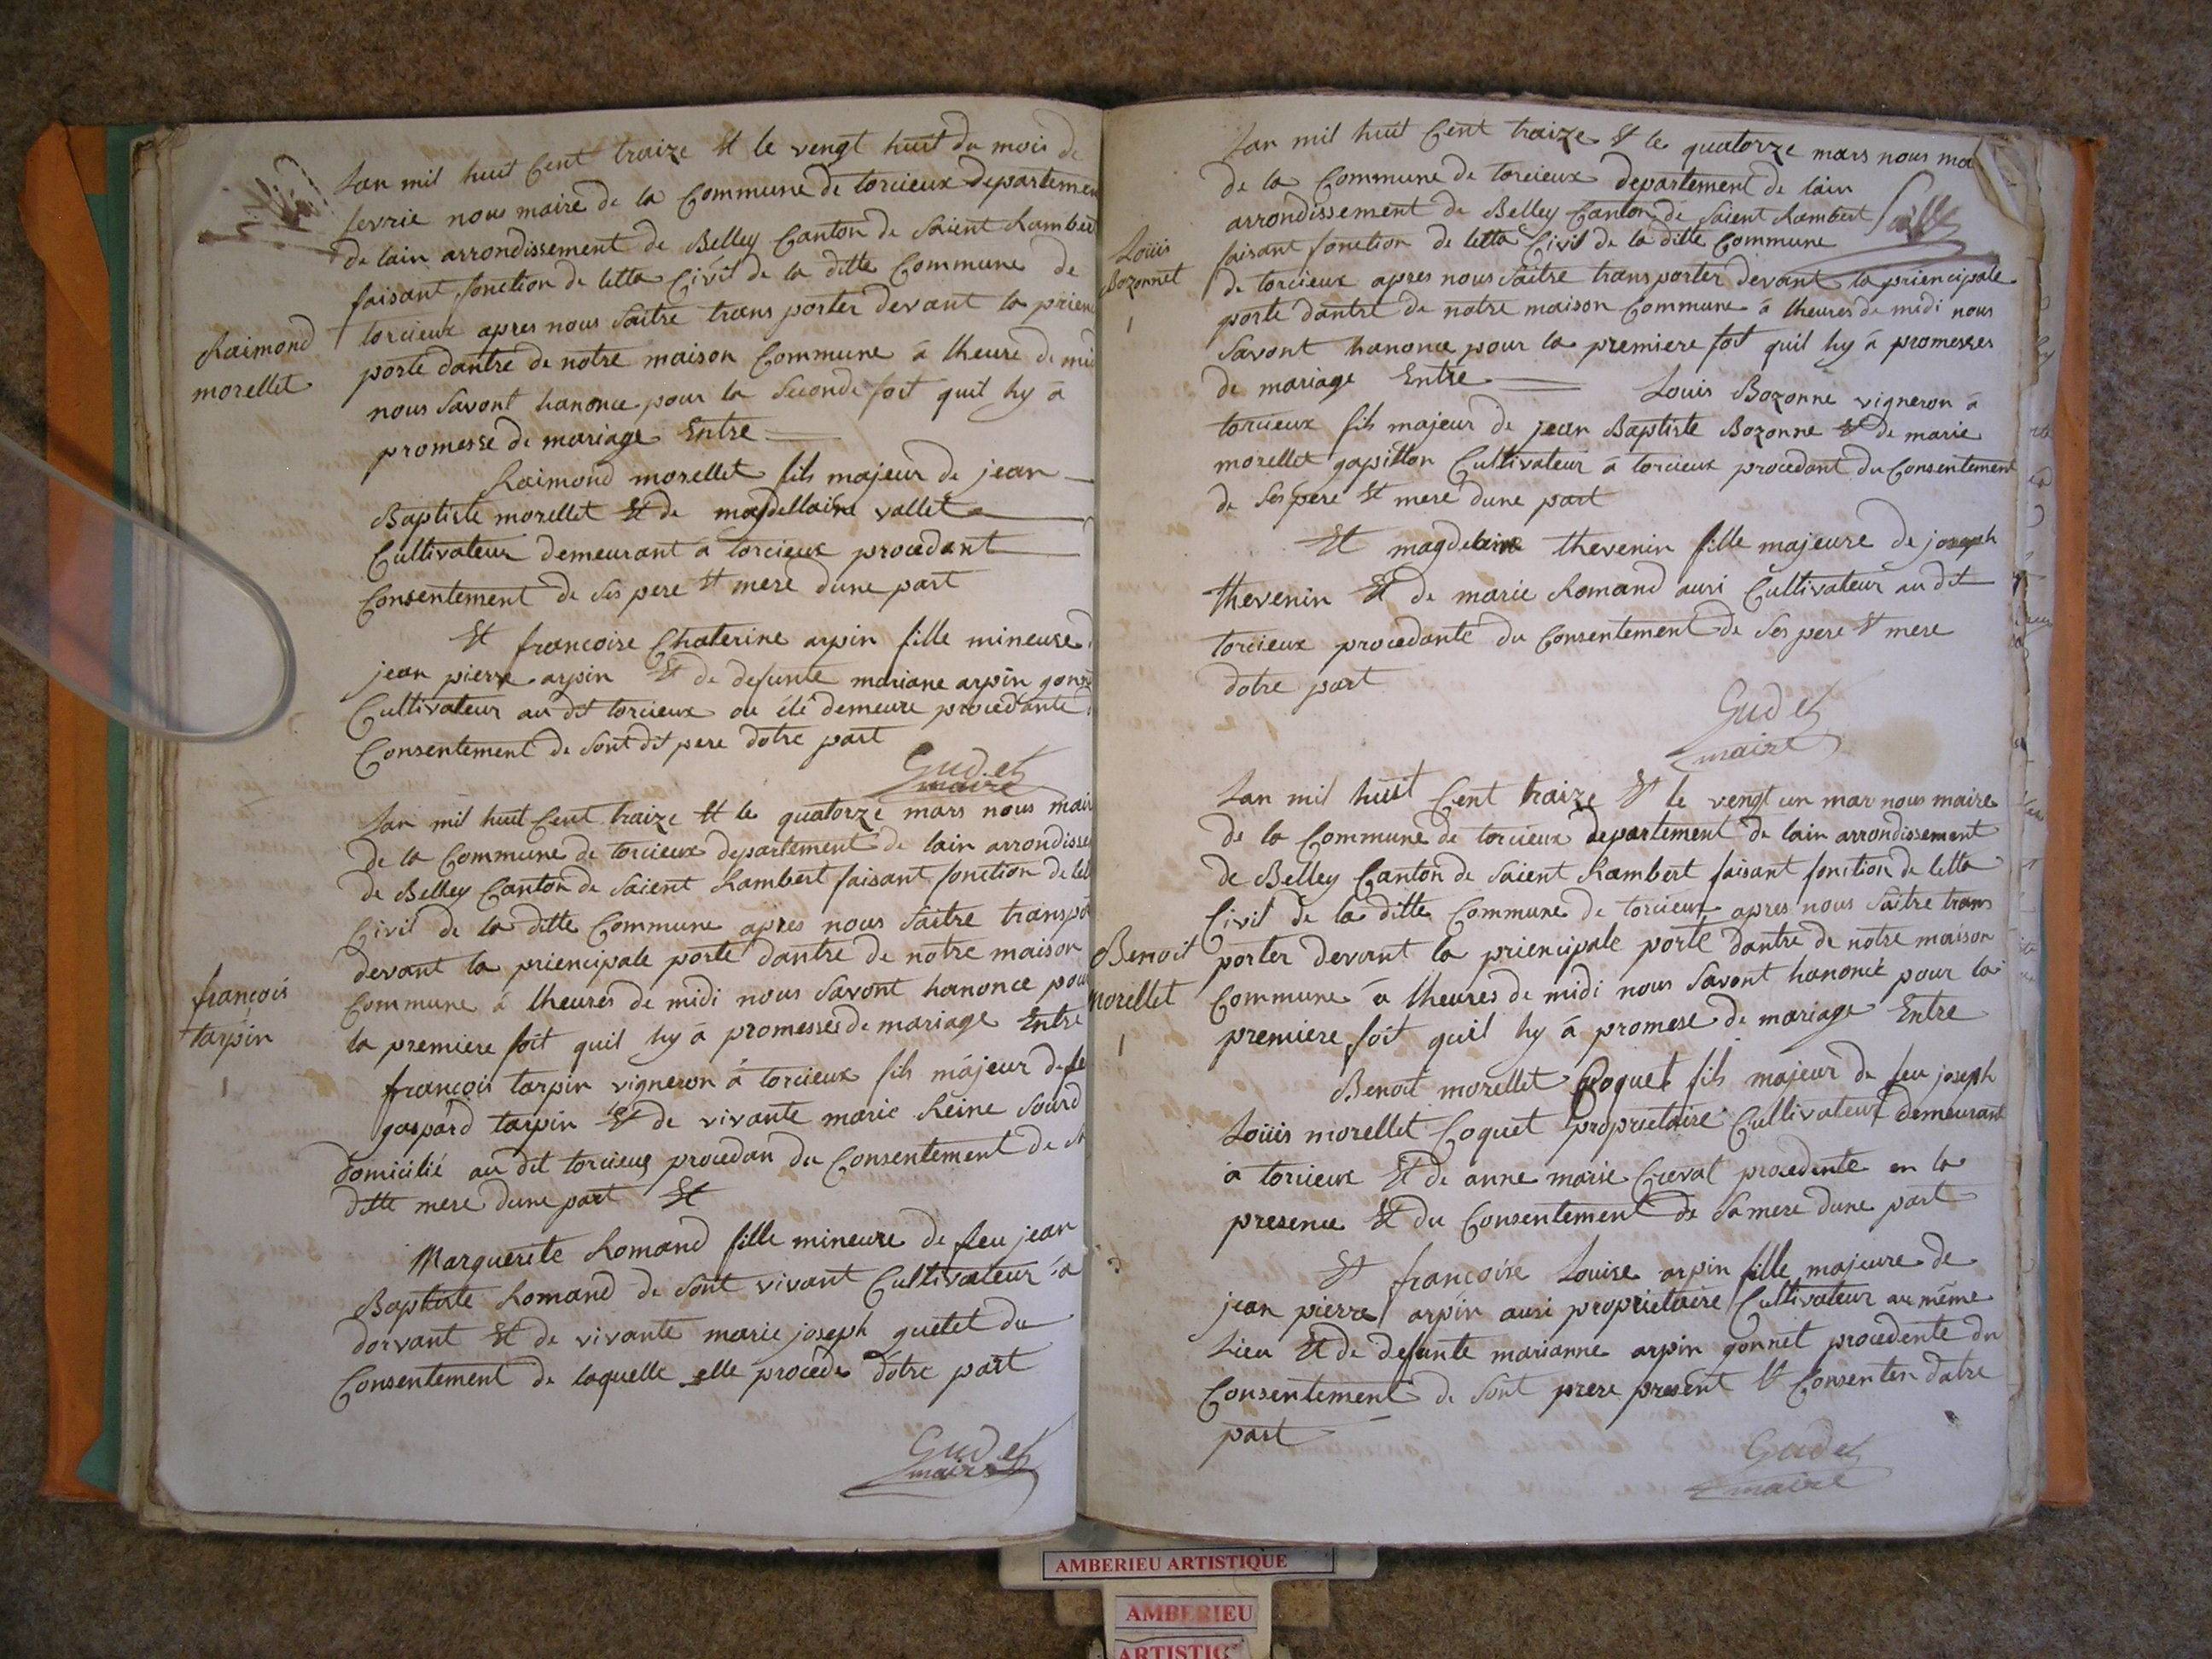 Lan mil huit Cent traize Et le vengt huit du mois de
fevrie nous maire de la Commune de torcieux departemen
de lain arrondissement de Belley Canton de Saient Rambert
faisant fonction de letta Civil de la ditte Commune de
torcieux apres nous Saitre trans porter devant la prien
porte dantre de notre maison Commune à lheure de mi
nous Savont hanonce pour la Seconde foit quil hy à
promesse de mariage Entre
Raimond
morellet
Raimond morellet fils majeur de jean
Baptiste morellet Et de magdellaine vallet
Cultivateur demeurant à torcieux procedant
Consentement de Ses pere Et mere dune part
Et francoise Chaterine arpin fille mineure
jean pierre arpin Et de defunte mariane arpin gonn
Cultivateur au dit torcieux ou élé demeure procedante
Consentement de Sont dit pere dotre part
Gudet
maire
Lan mil huit Cent traize Et le quatorze mars nous mair
de la Commune de torcieux departement de lain arrondisse
de Belley Canton de Saient Rambert faisant fonction de let
Civil de la ditte Commune apres nous Saitre transpo
devant la priencipale porte dantre de notre maison
Commune à lheures de midi nous Savont hanonce pour
la premiere foit quil hy à promesses de mariage Entre
francois
tarpin
1
francois tarpin vigneron à torcieux fils majeur de fe
gaspard tarpin Et de vivante marie Reine Sourd
domicilié au dit torcieux procedan du Consentement de
ditte mere dune part Et
Marguerite Romand fille mineure de feu jean
Baptiste Romand de Sont vivant Cultivateur à
dorvant Et de vivante marie joseph quetet du
Consentement de laquelle elle procede dotre part
Gudet
maire
Lan mil huit Cent traize Et le quatorze mars nous ma
de la Commune de torcieux departement de lain
arrondissement de Belley Canton de Saient Rambert
faisant fonction de letta Civil de la ditte Commune
de torcieux apres nous Saitre trans porter devant la priencipale
porte dantre de notre maison Commune à lheures de midi nous
Savont hanonce pour la premiere foit quil hy à promesses
de mariage Entre
Louis
Bozonnet
1
Louis Bozonne vigneron à
torcieux fils majeur de jean Baptiste Bozonne Et de marie
morellet gapillon Cultivateur à torcieux procedant du Consentement
de Ses pere Et mere dune part
Et magdelaine thevenin fille majeure de joseph
thevenin Et de marie Romand ausi Cultivateur au dit
torcieux procedante du Consentement de Ses pere Et mere
dotre part
Gudet
maire
Lan mil huit Cent traize Et le vengt un mar nous maire
de la Commune de torcieux departement de lain arrondissement
de Belley Canton de Saient Rambert faisant fonction de letta
Civil de la ditte Commune de torcieux apres nous Saitre trans
porter devant la priencipale porte dantre de notre maison
Commune à lheures de midi nous Savont hanoncé pour la
premiere foit quil hy à promese de mariage Entre
Benoit
morellet
1
Benoit morellet Coquet fils majeur de feu joseph
Louis morellet Coquet proprietaire Cultivateur demeurant
à torcieux Et de anne marie Creval procedente en la
presence Et du Consentement de Samere dune part
Et francoise Louise arpin fille majeure de
jean pierre arpin ausi proprietaire Cultivateur au même
Lieu Et de defunte marianne arpin gonnet procedente du
Consentement de Sont prere present Et Consenten datre
part
Gudet
maire
AMBERIEU ARTISTIQUE
AMBERIEU
ARTISTIC